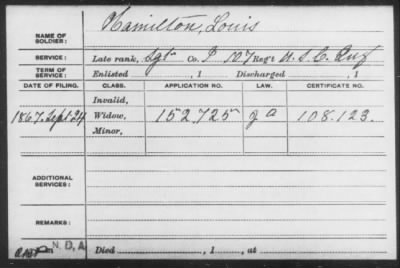 Hamilton, Louis
NAME OF SOLDIER:
SERVICE: Late rank, Sgt Co. I 107 Reg't U.S.C. Inf
TERM OF SERVICE: Enlisted , 1 Discharged , 1
DATE OF FILING. CLASS. APPLICATION NO. LAW. CERTIFICATE NO.
Invalid,
1867. Sept 24 Widow, 152.725 108.123.
Minor,
ADDITIONAL SERVICES:
REMARKS:
N.D.A.
Died , 1 , at